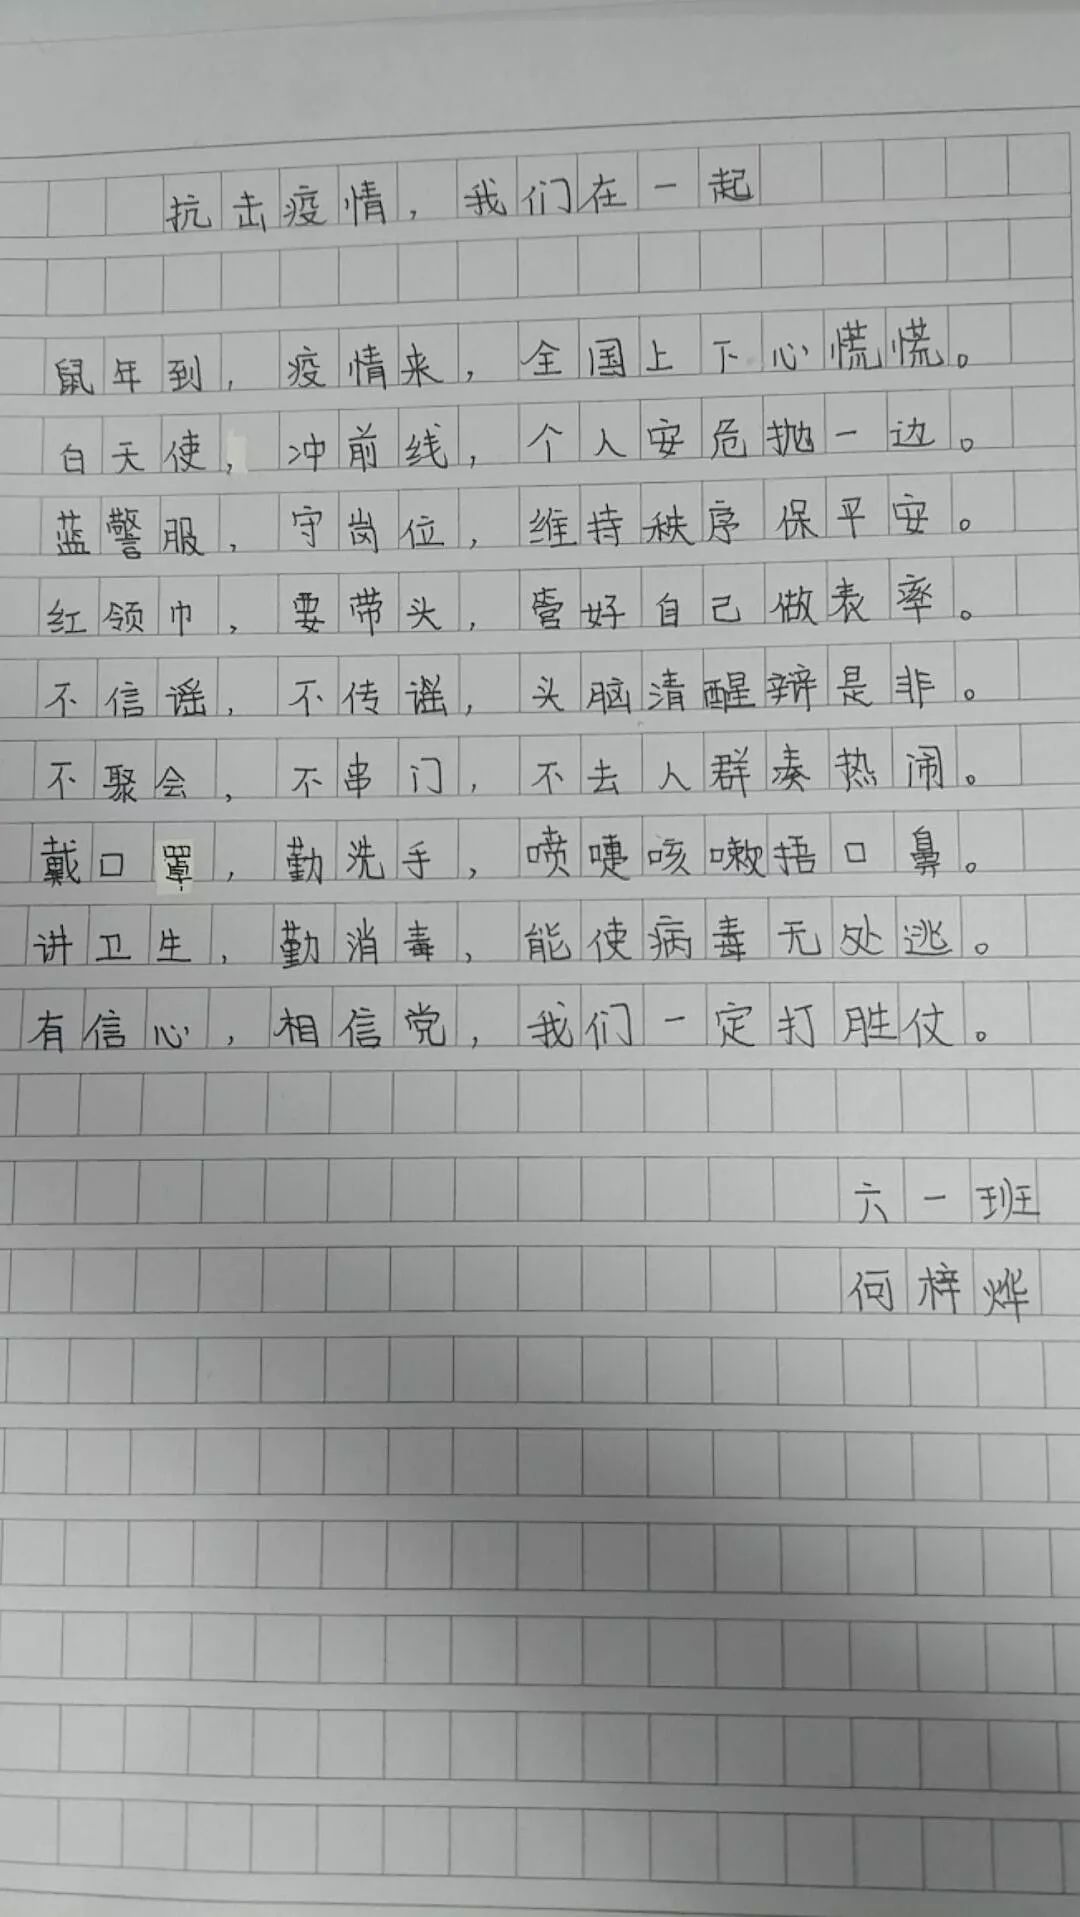 抗击疫情，我们在一起
鼠年到，疫情来，全国上下心慌慌。
白天使，冲前线，个人安危抛一边。
蓝警服，守岗位，维持秩序保平安。
红领巾，要带头，管好自己做表率。
不信谣，不传谣，头脑清醒辩是非。
不聚会，不串门，不去人群凑热闹。
戴口罩，勤洗手，喷嚏咳嗽捂口鼻。
讲卫生，勤消毒，能使病毒无处逃。
有信心，相信党，我们一定打胜仗。
六一班
何梓烨